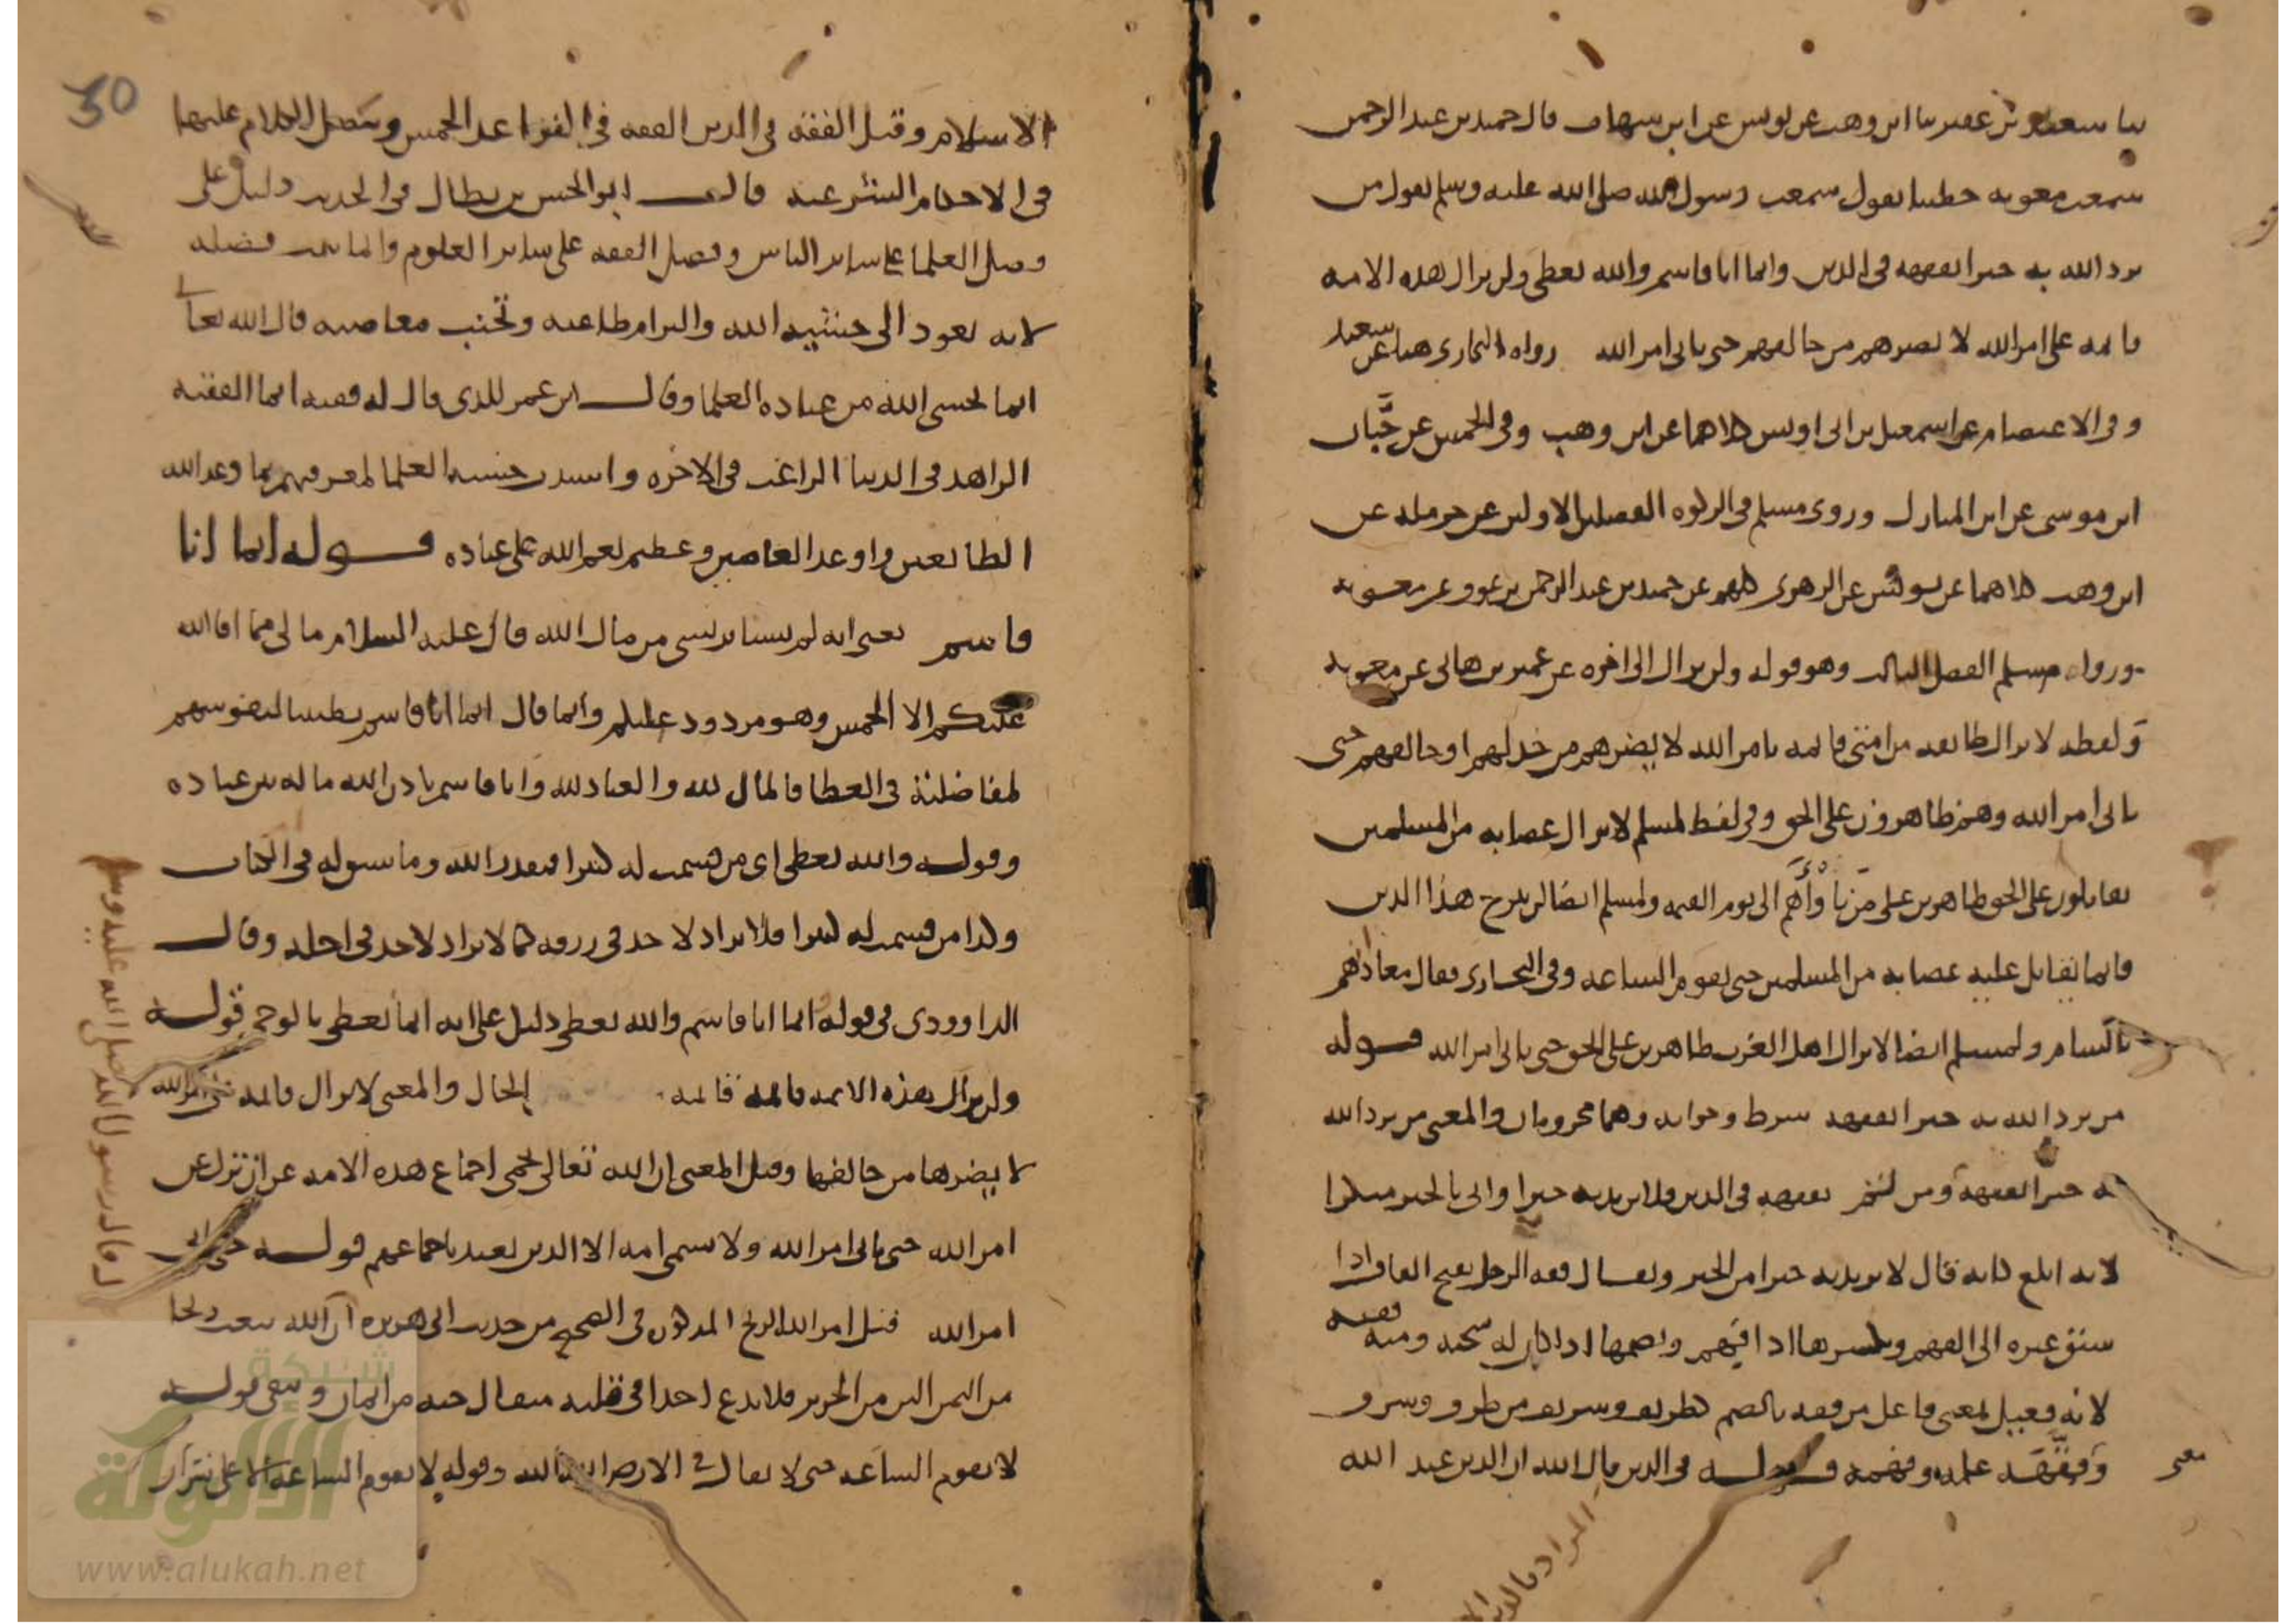 ثنا سعيد بن عفير ثنا ابن وهب عن يونس عن ابن شهاب قال حميد بن عبد الرحمن
سمعت معوية خطيبا يقول سمعت رسول الله صلى الله عليه وسلم يقول من
يرد الله به خيرا يفقهه في الدين وانما انا قاسم والله يعطي ولن يزال هذه الامة
قائمة على امر الله لا يضرهم من خالفهم حتى ياتي امر الله رواه البخاري هنا عن سعيد
وفي الاعتصام عن اسمعيل بن ابي اويس كلاهما عن ابن وهب وفي الخمس عن حبان
ابن موسى عن ابن المبارك وروى مسلم في الزكوة الفصلين الاولين عن حرملة عن
ابن وهب كلاهما عن يونس عن الزهري كلهم عن حميد بن عبد الرحمن بن عوف عن معوية
ورواه مسلم الفصل الثالث وهو قوله ولن يزال الى اخره عن عمير بن هاني عن معوية
ولفظه لا تزال طائفة من امتي قائمة بامر الله لا يضرهم من خذلهم او خالفهم حتى
ياتي امر الله وهم ظاهرون على الحق وفي لفظ لمسلم لا يزال عصابة من المسلمين
يقاتلون على الحق ظاهرين على من ناوأهم الى يوم القيمة ولمسلم ايضا لن يبرح هذا الدين
قائما يقاتل عليه عصابة من المسلمين حتى تقوم الساعة وفي البخاري فقال معاذ هم
بالشام ولمسلم ايضا لا يزال اهل الغرب ظاهرين على الحق حتى ياتي امر الله قوله
من يرد الله به خيرا يفقهه شرط وجوابه وهما مجزومان والمعنى من يرد الله
به خيرا يفقهه ومن لم يفقهه في الدين فلا يريد به خيرا واتى بالخير منكرا
لانه ابلغ كانه قال لا يريد به خيرا من الخير ويقال فقه الرجل بفتح القاف اذا
سبق غيره الى الفهم وبكسرها اذا فهم وبضمها اذا كان له سجية ومنه فقيه
لانه فعيل بمعنى فاعل من فقه بالضم كظريف وشريف من ظرف وشرف
معنى وفقهه علمه وفهمه وقوله في الدين قال الله ان الدين عند الله
المراد بالدين
30
الاسلام وقيل الفقه في الدين الفقه في القواعد الخمس ويتصل الكلام عليها
في الاحكام الشرعية قال ابو الحسن بن بطال في الحديث دليل على
فضل العلما على ساير الناس وفضل الفقه على ساير العلوم وانما ثبت فضله
لانه يعود الى خشية الله والتزام طاعته وتجنب معاصيه قال الله تعالى
انما يخشى الله من عباده العلما وقال ابن عمر للذي قال له فقيه انما الفقيه
الزاهد في الدنيا الراغب في الاخرة واشتدت خشية العلما لمعرفتهم بما وعد الله
الطائعين واوعد العاصين وعظيم نعم الله على عباده قوله انما انا
قاسم يعني انه لم يستاثر بشي من مال الله قال عليه السلام ما لي مما افا الله
عليكم الا الخمس وهو مردود عليكم وانما قال انما انا قاسم تطييبا لنفوسهم
لمفاضلته في العطا فالمال لله والعباد لله وانا قاسم باذن الله ماله بين عباده
وقوله والله يعطي اي من قسمت له كثيرا فبقدر الله وما سبق له في الكتاب
وكذا من قسمت له كثيرا فلا يزاد لاحد في رزقه كما لا يزاد لاحد في اجله وقال
الداوودي في قوله انما انا قاسم والله يعطي دليل على انه انما يعطي بالوحي قوله
ولن يزال هذه الامة قائمة الحال والمعنى لا تزال قائمة
لا يضرها من خالفها وقيل المعنى ان الله تعالى يحمي اجماع هذه الامة عن ان تزل عن
امر الله حتى ياتي امر الله ولا يسمى امة الا الذين يعتد باجماعهم قوله حتى ياتي
امر الله قيل امر الله الريح المذكور في الصحيح من حديث ابي هريرة ان الله يبعث ريحا
من اليمن الين من الحرير فلا تدع احدا في قلبه مثقال حبة من ايمان
لا تقوم الساعة حتى لا يقال في الارض الله الله وقوله لا تقوم الساعة الا على شرار
قال رسول الله صلى الله عليه وسلم
شبكة
الألوكة
www.alukah.net